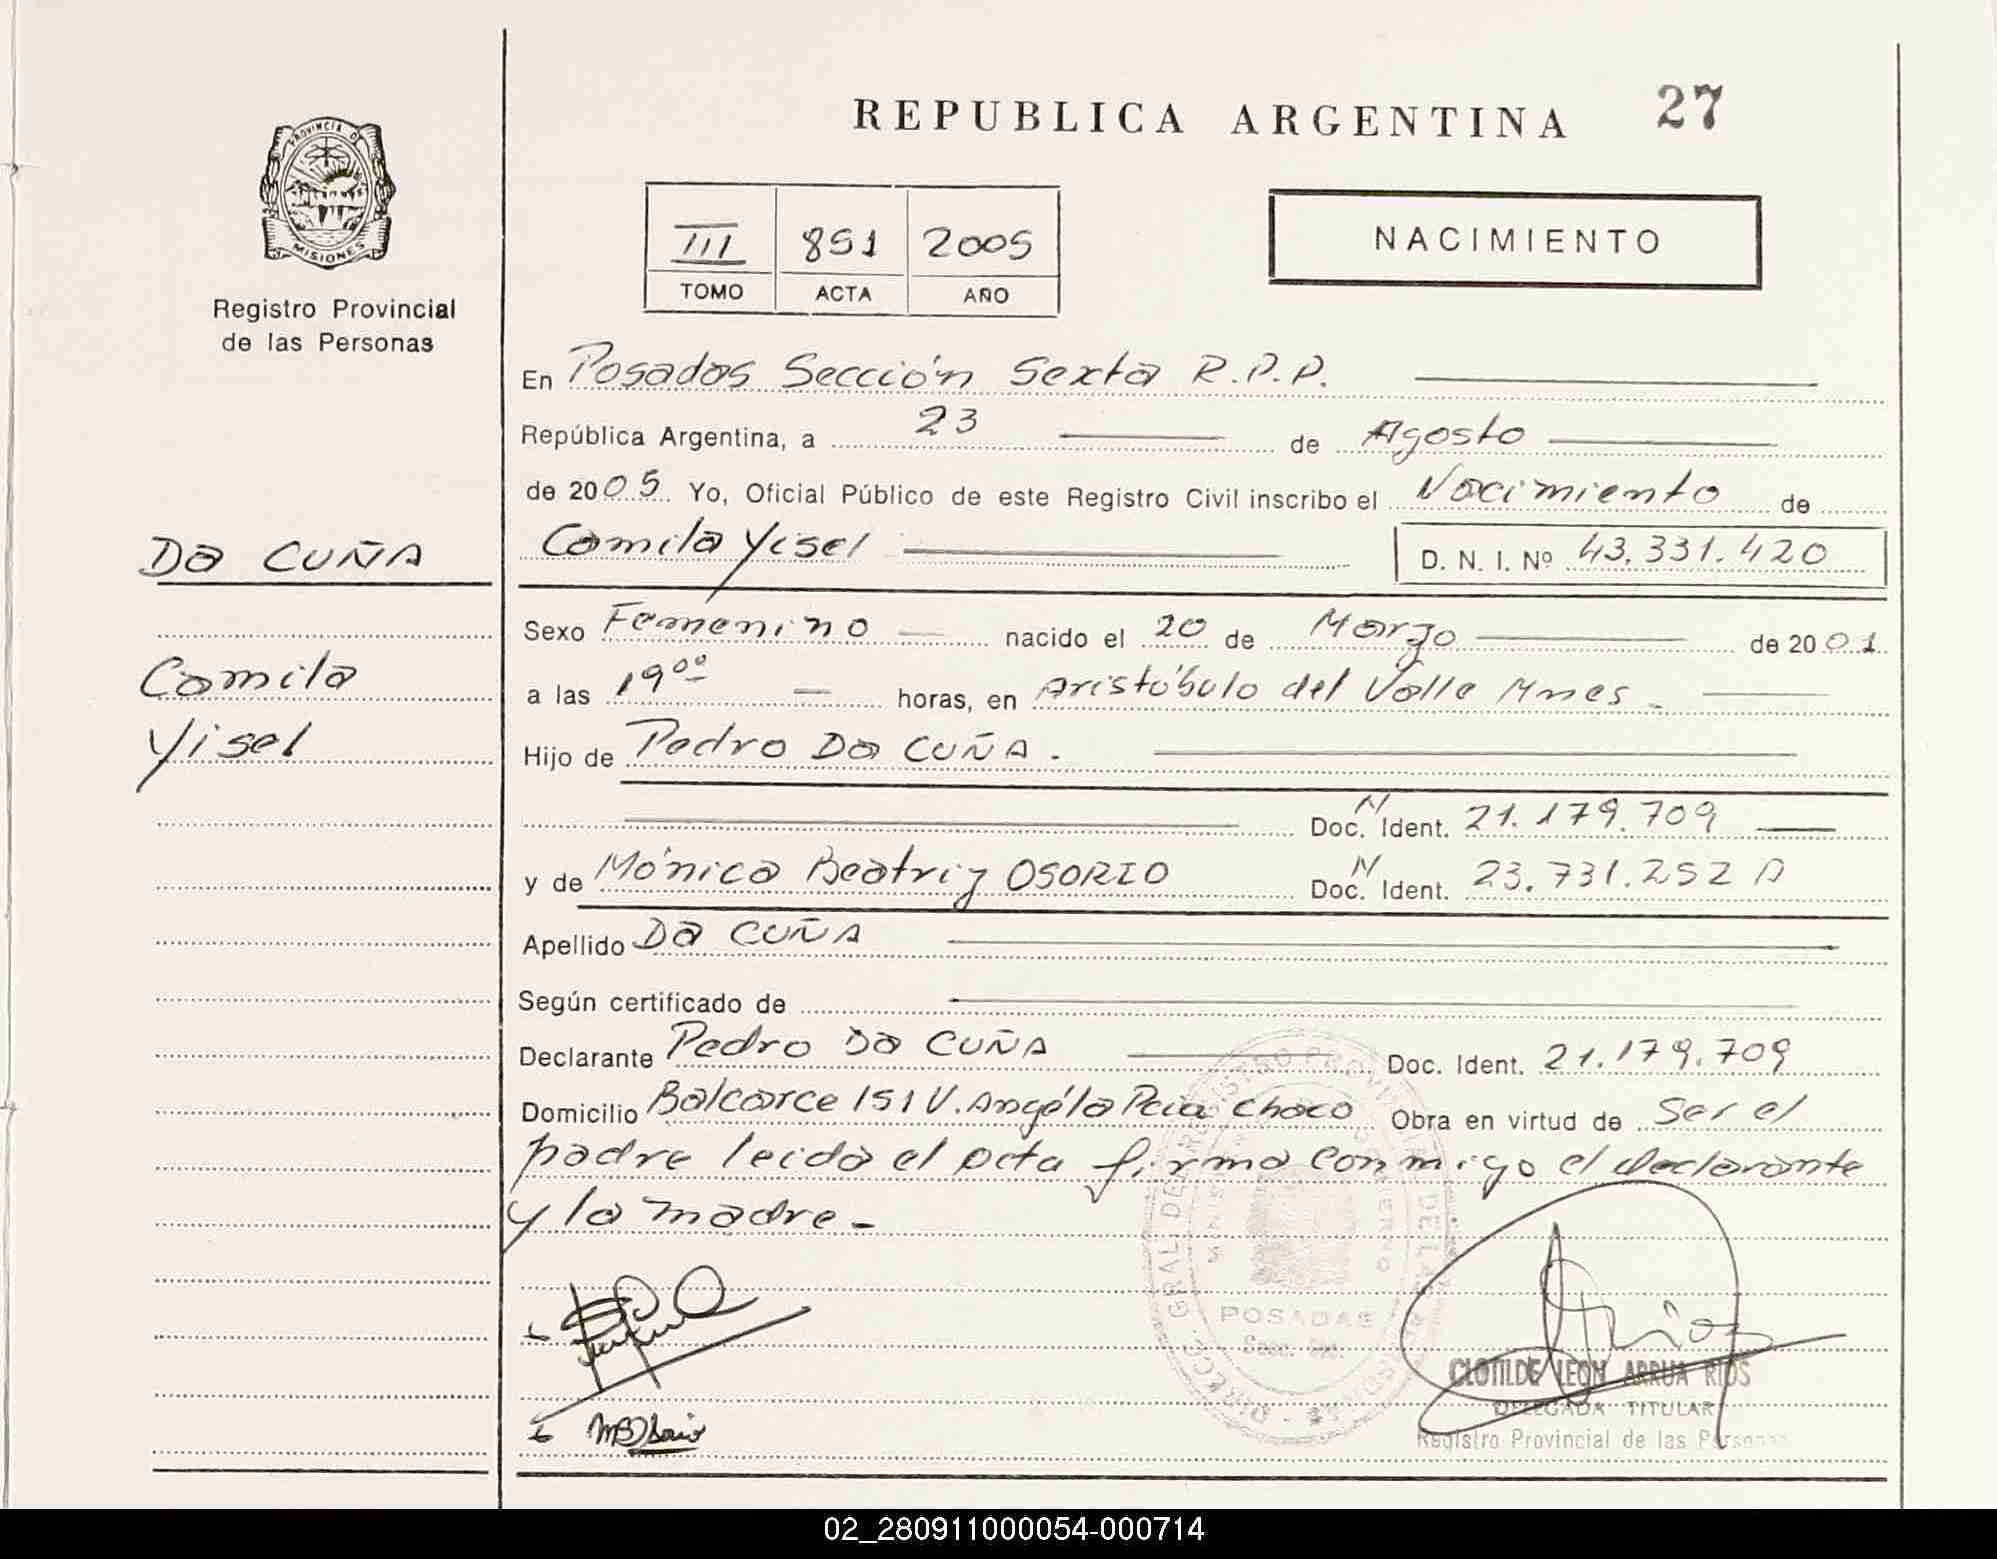 REPUBLICA ARGENTINA 27
PROVINCIA DE
MISIONES
Registro Provincial
de las Personas
III 851 2005
TOMO ACTA AÑO
NACIMIENTO
En Posadas Sección Sexta R.P.P.
República Argentina, a 23 de Agosto
de 2005 Yo, Oficial Público de este Registro Civil inscribo el Nacimiento de
Da CUÑA
Camila Yisel D. N. I. Nº 43.331.420
Sexo Femenino nacido el 20 de Marzo de 2001
Camila
a las 19⁰⁰ horas, en Aristóbulo del Valle Mnes.
Yisel
Hijo de Pedro Da CUÑA.
Doc. N Ident. 21.179.709
y de Mónica Beatriz OSORIO Doc. N Ident. 23.731.252 A
Apellido Da CUÑA
Según certificado de
Declarante Pedro Da CUÑA Doc. Ident. 21.179.709
Domicilio Balcarce 151 V. Angéla Chaco Obra en virtud de Ser el
padre leida el acta firma conmigo el declarante
y la madre.-
POSADAS
CLOTILDE LEON ARRUA RIOS
DELEGADA TITULAR
Registro Provincial de las Personas
02_280911000054-000714